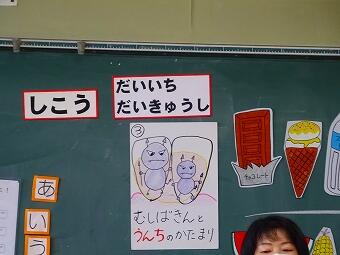 しこう
だいいち
だいきゅうし
③
むしばきんと
うんちのかたまり
チョコレート
あ
い
う